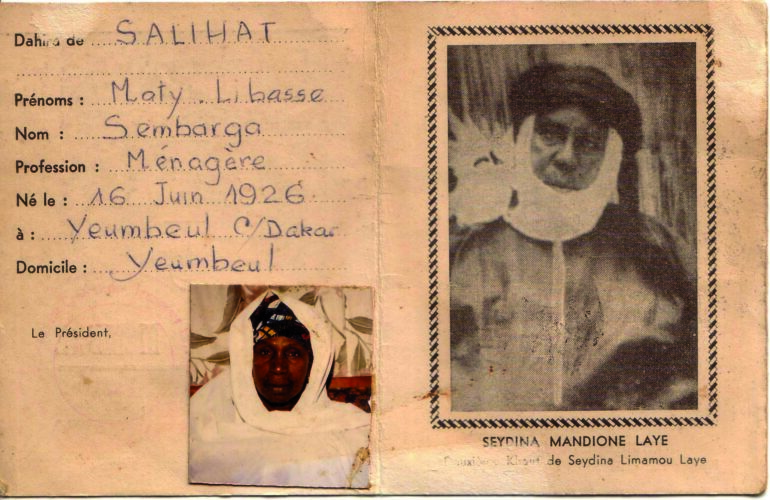 Dahira de SALIHAT
Prénoms : Maty. Libasse
Nom : Sembarga
Profession : Ménagère
Né le : 16 Juin 1926
à : Yeumbeul C/Dakar
Domicile : Yeumbeul
Le Président,
SEYDINA MANDIONE LAYE
de Seydina Limamou Laye